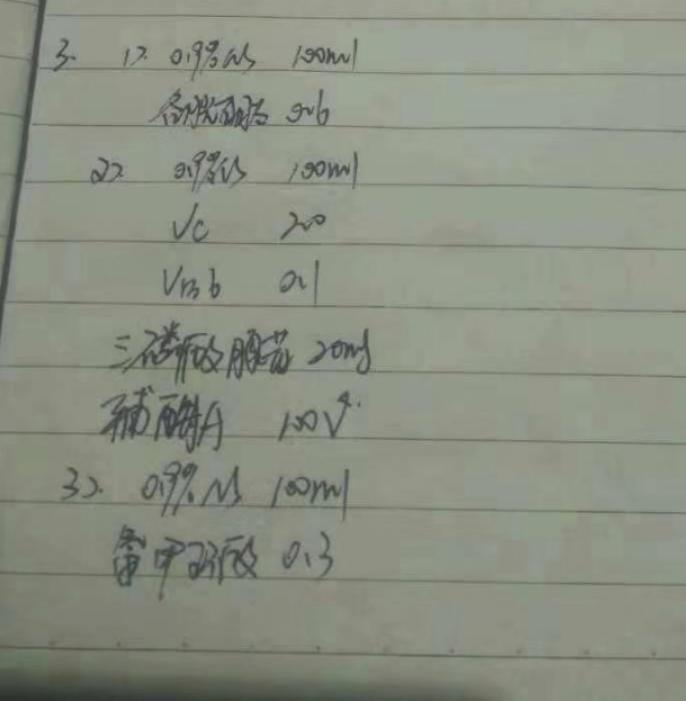 3. 1). 0.9% NS 100ml
谷胱甘肽 0.6
2). 0.9% NS 100ml
Vc 2.0
VB6 0.1
三磷酸腺苷 20mg
辅酶A 100
3). 0.9% NS 100ml
0.3